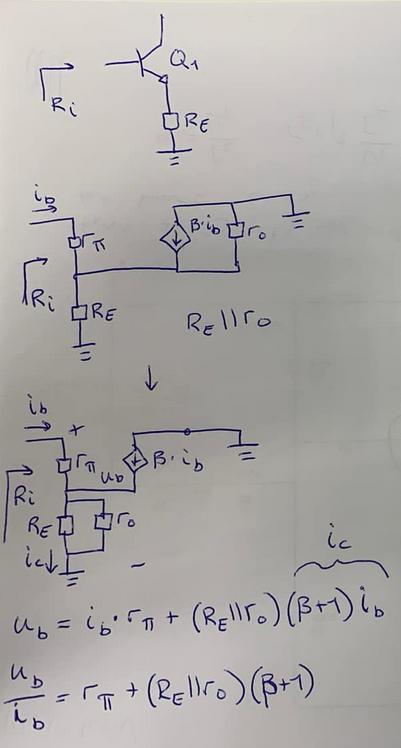 Q1
Ri
RE
ib
β·ib
ro
rπ
Ri
RE
RE||ro
ib
+
rπ
ub
β·ib
Ri
RE
ro
ic
−
ic
ub = ib·rπ + (RE||ro)(β+1)ib
ub/ib = rπ + (RE||ro)(β+1)